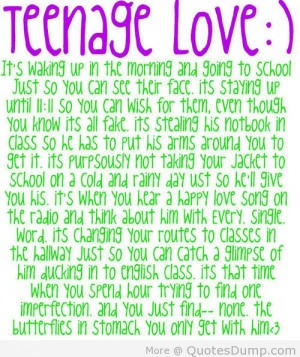 Teenage Love:)
It's waking up in the morning and going to school
Just so you can see their face. its staying up
until 11:11 so you can wish for them, even though
you know its all fake. its stealing his notbook in
class so he has to put his arms around you to
get it. its purpsously not taking your jacket to
school on a cold and rainy day ust so he'll give
you his. it's when you hear a happy love song on
the radio and think about him with every. single.
word. its changing your routes to classes in
the hallway just so you can catch a glimpse of
him ducking in to english class. its that time
when you spend hour trying to find one
imperfection. and you just find-- none. the
butterflies in stomach you only get with him<3
More @ QuotesDump.com